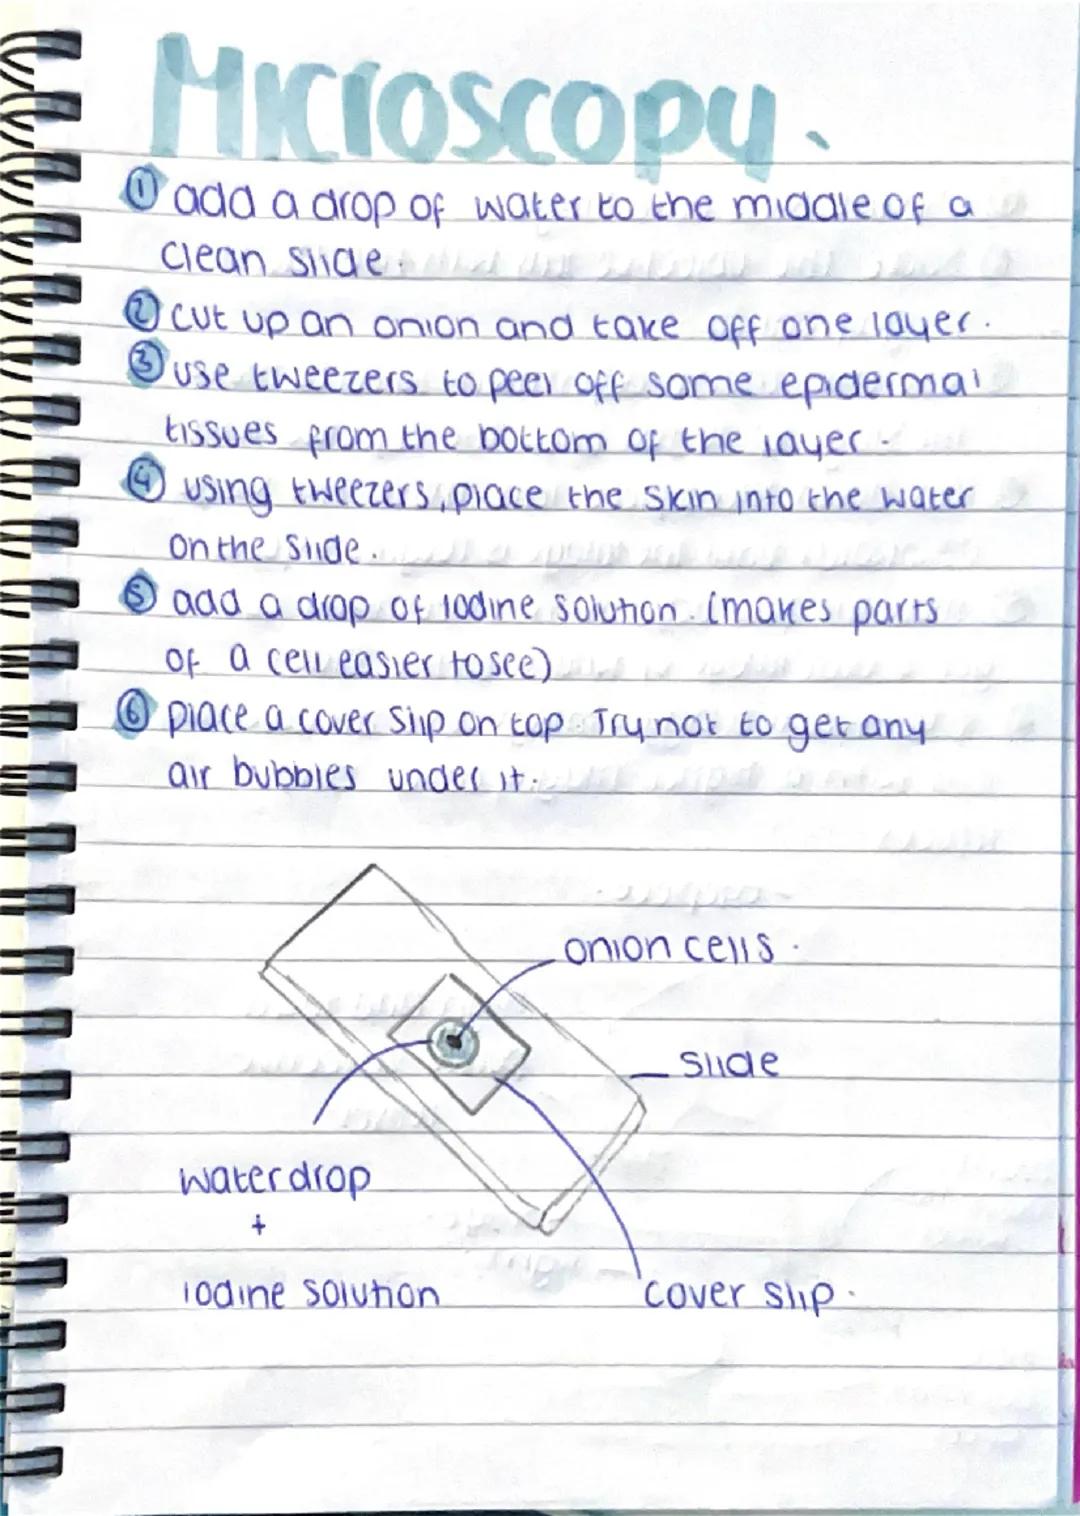 Microscopy.
① add a drop of water to the middle of a
clean slide.
② cut up an onion and take off one layer.
③ use tweezers to peel off some epidermal
tissues from the bottom of the layer.
④ using tweezers, place the skin into the water
on the slide.
⑤ add a drop of iodine solution. (makes parts
of a cell easier to see)
⑥ place a cover slip on top. Try not to get any
air bubbles under it.
onion cells.
slide
water drop
+
iodine solution
cover slip.